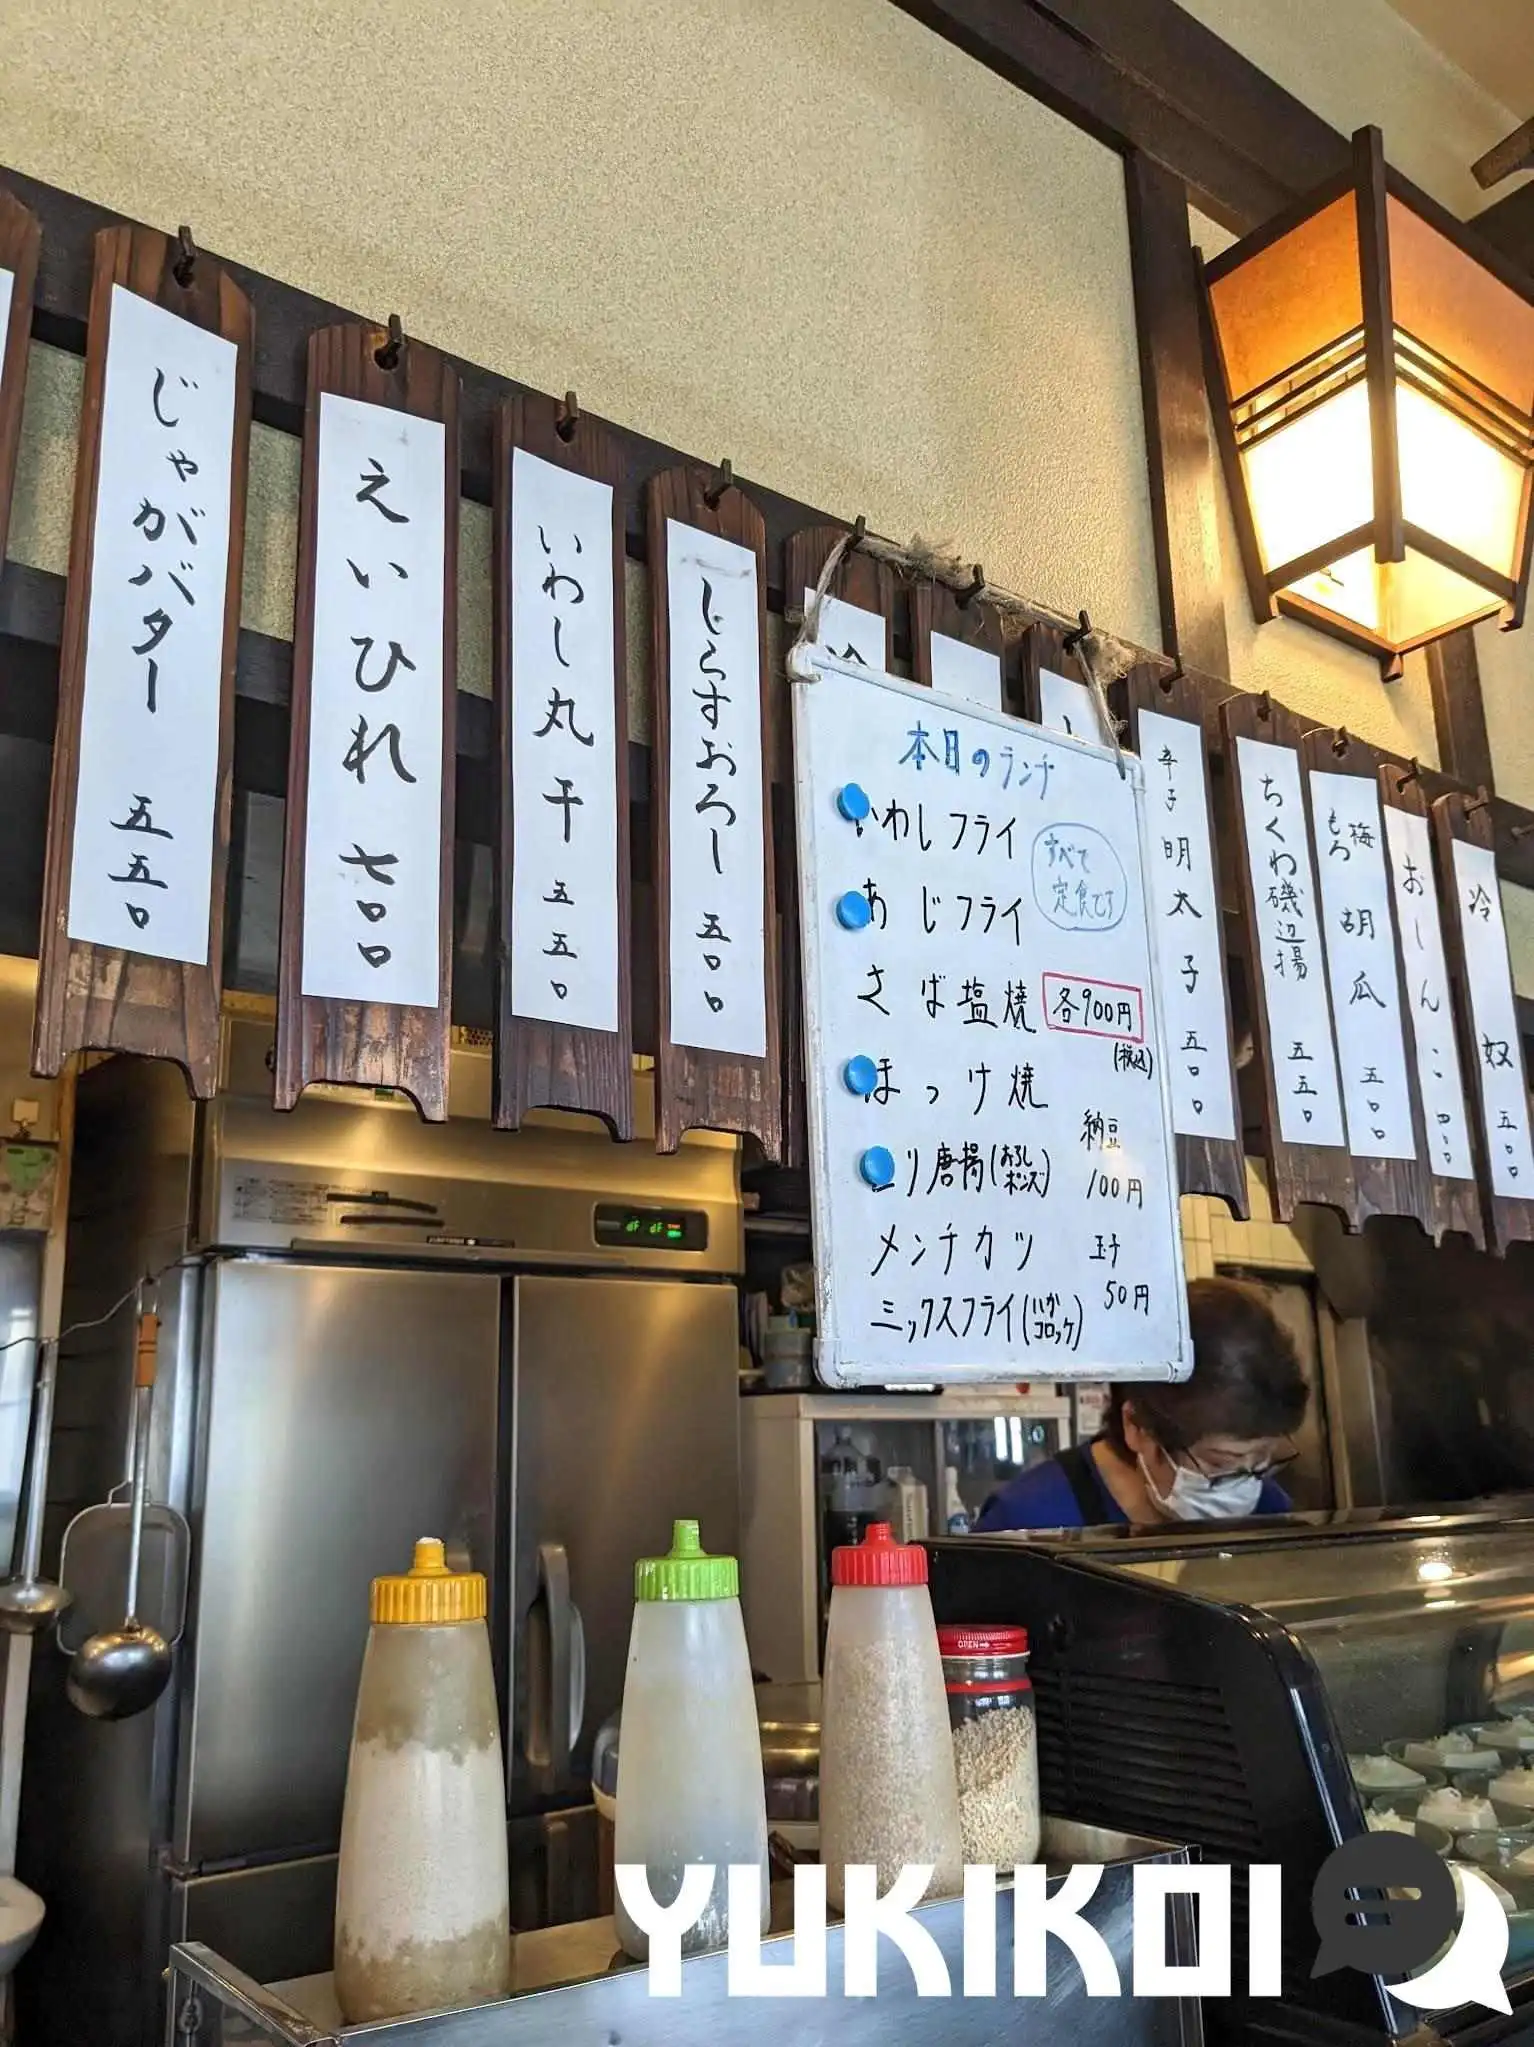 じゃがバター 五五〇
えいひれ 七〇〇
いわし丸干 五五〇
しらすおろし 五〇〇
冷
本日のランチ
いわしフライ
あじフライ
すべて
定食です
さば塩焼
各900円
(税込)
ほっけ焼
リ唐揚(おろし
ポンズ)
納豆
100円
メンチカツ
玉子
50円
ミックスフライ(いか
コロッケ)
辛子明太子 五〇〇
ちくわ磯辺揚 五五〇
梅
もろ
胡瓜 五〇〇
おしんこ 四〇〇
冷奴 五〇〇
OPEN
YUKIKOI